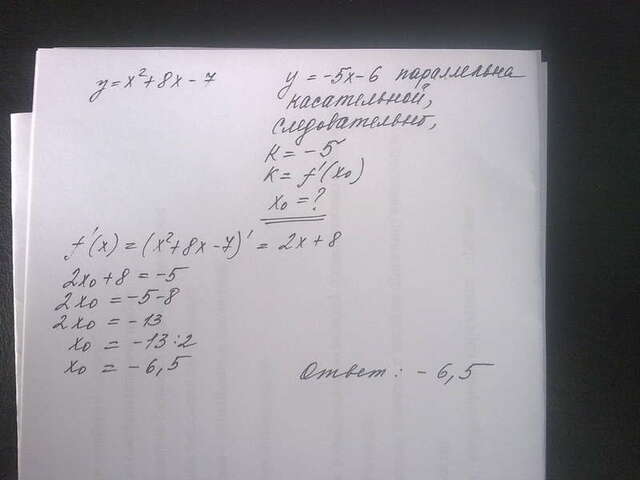 y = x² + 8x - 7
y = -5x - 6 параллельна
касательной,
следовательно,
K = -5
K = f'(x₀)
x₀ = ?
f'(x) = (x² + 8x - 7)' = 2x + 8
2x₀ + 8 = -5
2x₀ = -5 - 8
2x₀ = -13
x₀ = -13 : 2
x₀ = -6,5
Ответ: -6,5